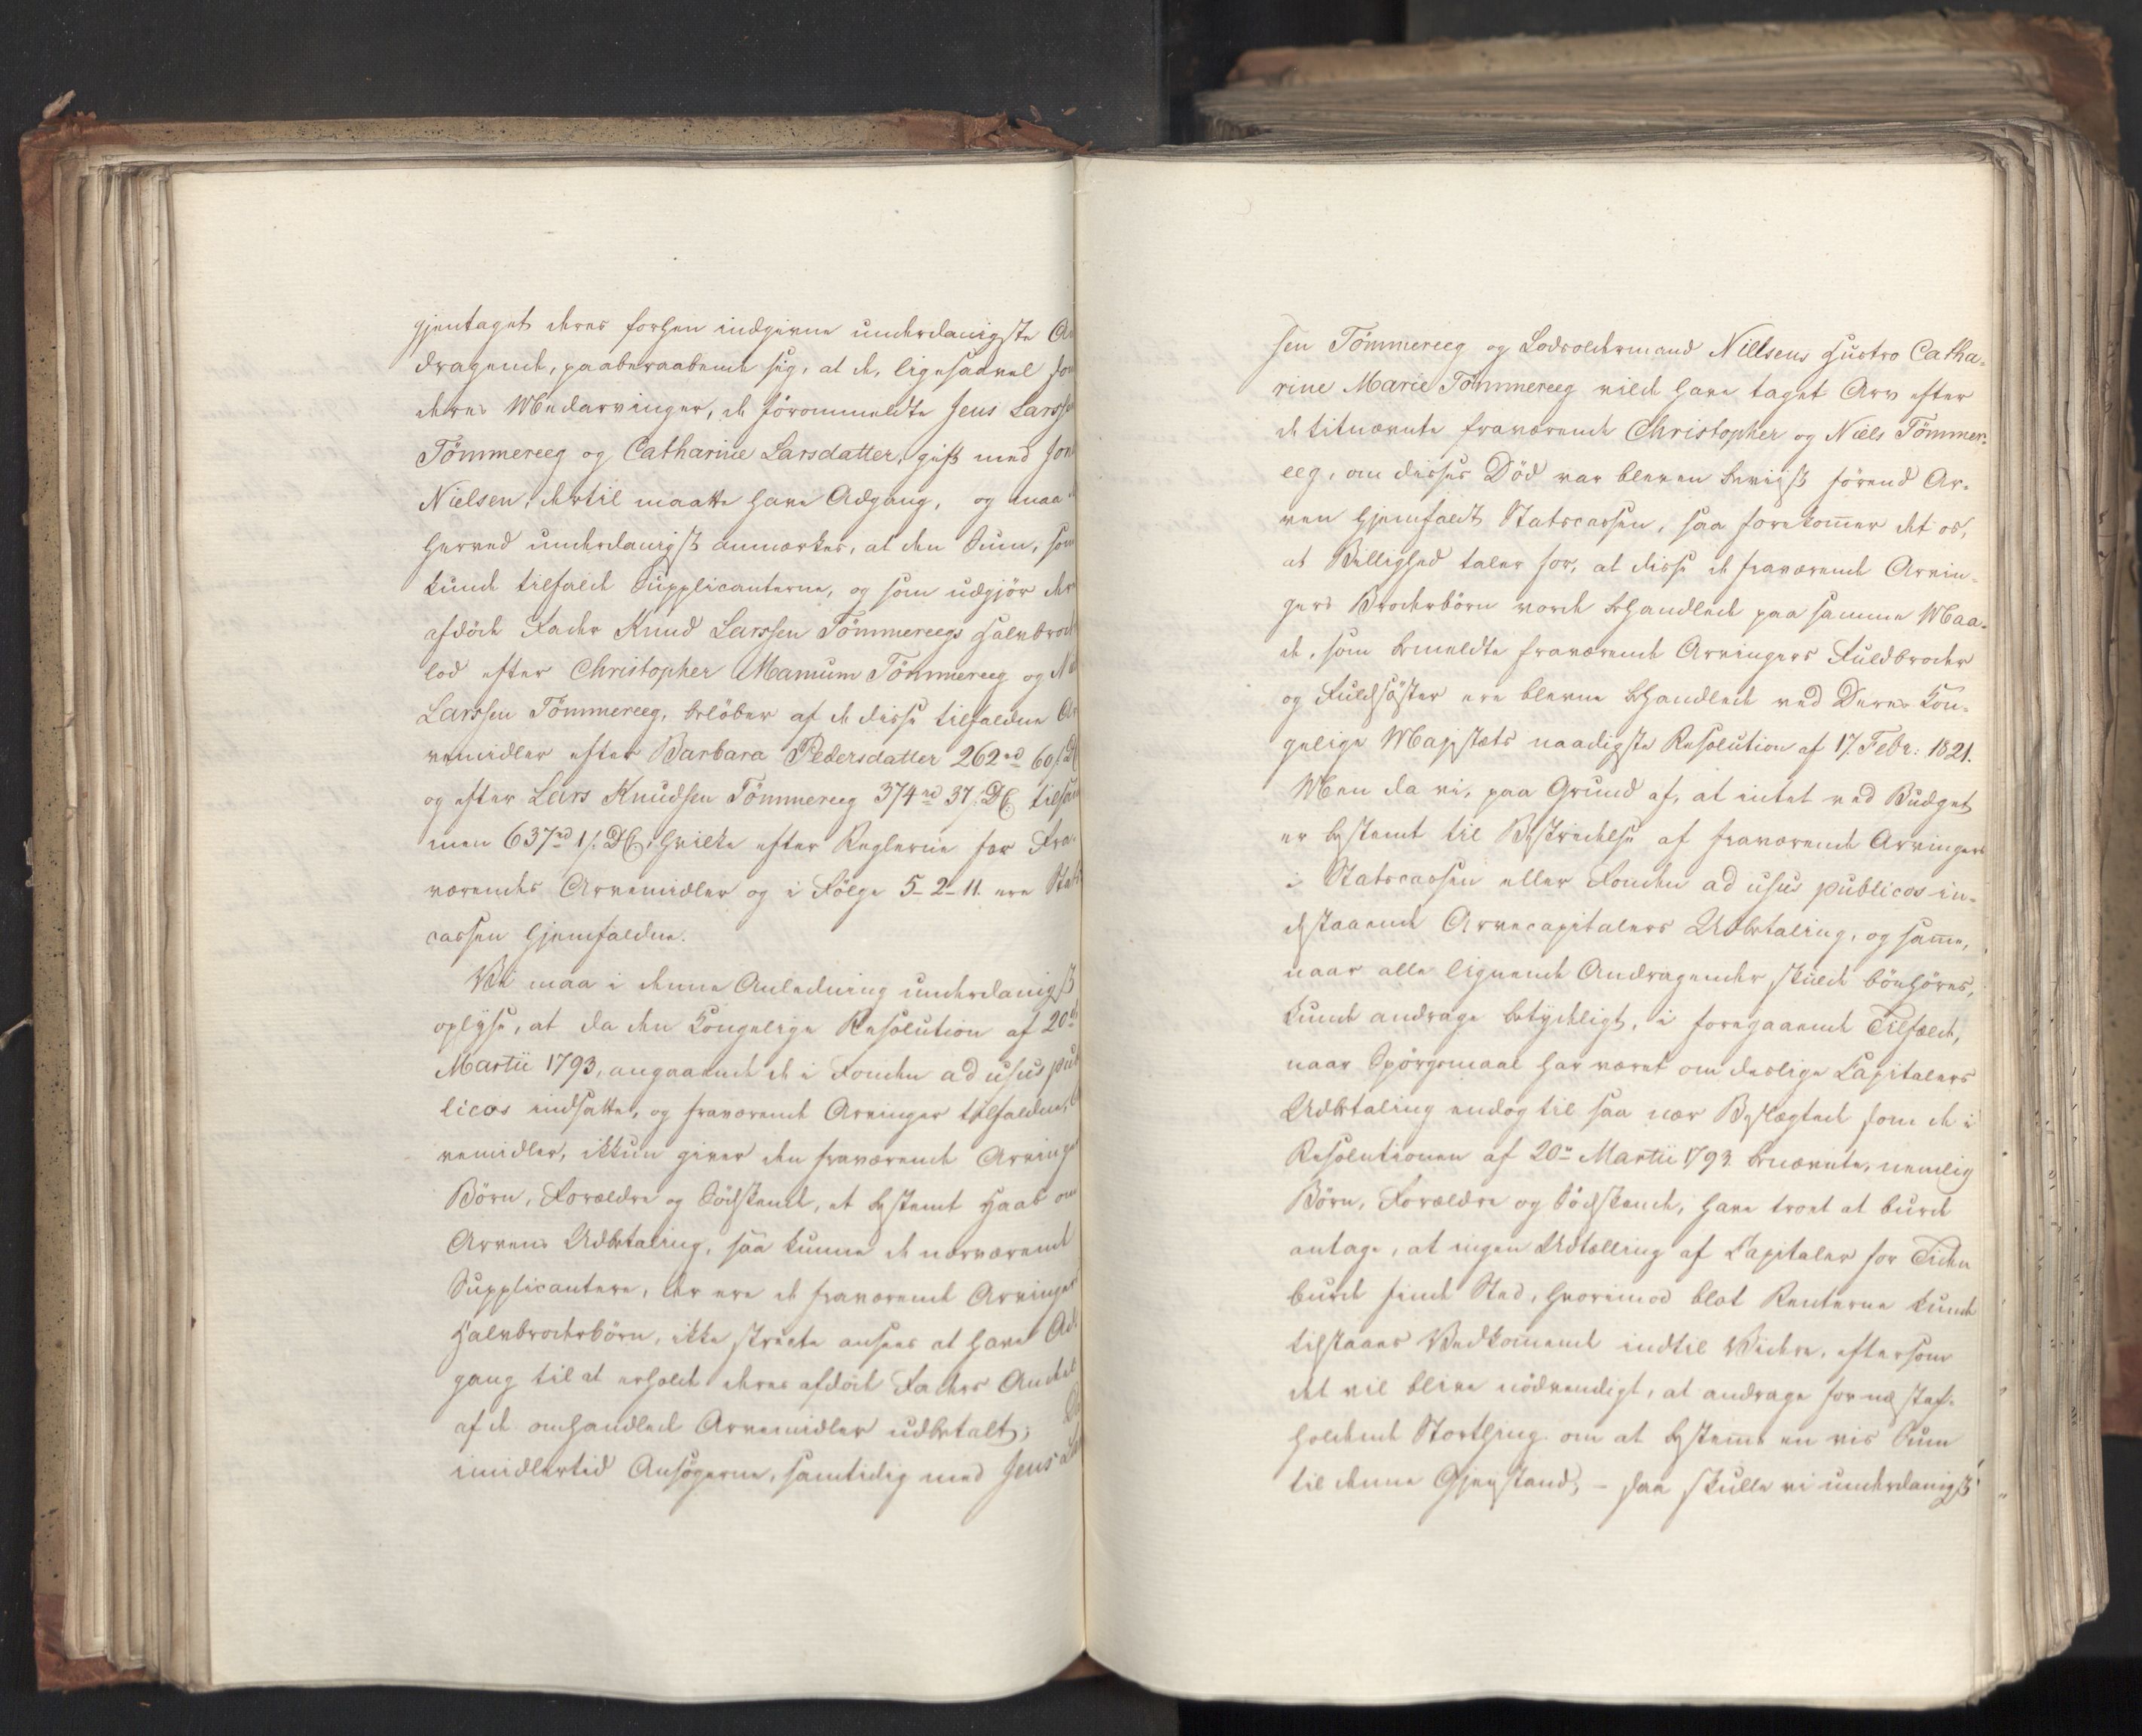 gjentaget deres forhen indgivne underdanigste An
dragende, paaberaabende sig, at de, ligesaavel som
deres Medarvinger, de förommeldte Jens Larssen
Tömmereeg og Catharine Larsdatter, gift med Jon
Nielsen, dertil maatte have Adgang, og maa
herved underdanigst anmærkes, at den Sum, som
kunde tilfalde Supplicanterne, og som udgjör der
afdöde Fader Knud Larssen Tömmereegs Halvbroder
lod efter Christopher Mamum Tömmereeg og Ni
Larssen Tömmereeg, belöber af de disse tilfaldne Ar
vemidler efter Barbara Pedersdatter 262 rd 60 s.
og efter Lars Knudsen Tömmereeg 374 rd 37. D.C. tilsam
men 637 rd 1 s. D.C., hvilke efter Reglerne for Fra-
værendes Arvemidler og i Fölge 5-2-11. ere Stats
cassen hjemfaldne.
Vi maa i denne Anledning underdanigst
oplyse, at da den Kongelige Resolution af 20de
Martii 1793, angaaende de i Fonden ad usus pub
licos indsatte, og fraværende Arvinger tilfaldne,
vemidler, ikkun giver den fraværende Arvinges
Börn, Forældre og Södskende, et bestemt Haab om
Arvens Udbetaling, saa kunne de nærværende
Supplicantere, der ere de fraværende Arvinger
Halvbroderbörn, ikke stricte ansees at have Ad-
gang til at erholde deres afdöde Faders Andel
af de omhandlede Arvemidler udbetalt;
imidlertid Ansögerne, samtidig med Jens La
sen Tömmereeg og Lodsoldermand Nillsens Hustro Catha-
rine Marie Tömmereeg vilde have taget Arv efter
de titnævnte fraværende Christopher og Niels Tömmer-
eeg, om disses Död var bleven beviist förend Ar-
ven hjemfaldt Statscassen, saa forekom̃er det os,
at Billighed taler for, at disse de fraværende Arvin-
gers Broderbörn vorde behandlede paa samme Maa-
de, som bemeldte fraværende Arvingers Fuldbroder
og Fuldsöster ere blevne behandlede ved Deres Kon-
gelige Majestæts naadigste Resolution af 17. Febr: 1821.
Men da vi, paa Grund af, at intet ved Budget
er bestemt til Bestridelse af fraværende Arvingers
i Statscassen eller Fonden ad usus publicos in-
destaaende Arvecapitalers Udbetaling, og sam̃e,
naar alle lignende Andragender skulde bönhöres,
kunde andrage betydeligt, i foregaaende Tilfælde,
naar Spörgsmaal har været om deslige Capitalers
Udbetaling endog til saa nær Beslægtede som de i
Resolutionen af 20de Martii 1793. benævnte, nemlig
Börn, Forældre og Södskende, have troet at burde
antage, at ingen Udtælling af Capitaler for Tiden
burde finde Sted, hvorimod blot Renterne kunde
tilstaaes Vedkom̃ende indtil Videre, eftersom
det vil blive nödvendigt, at andrage for næstaf-
holdende Storthing om at bestem̃e en vis Sum
til denne Gjenstand, – saa skulle vi underdanigst